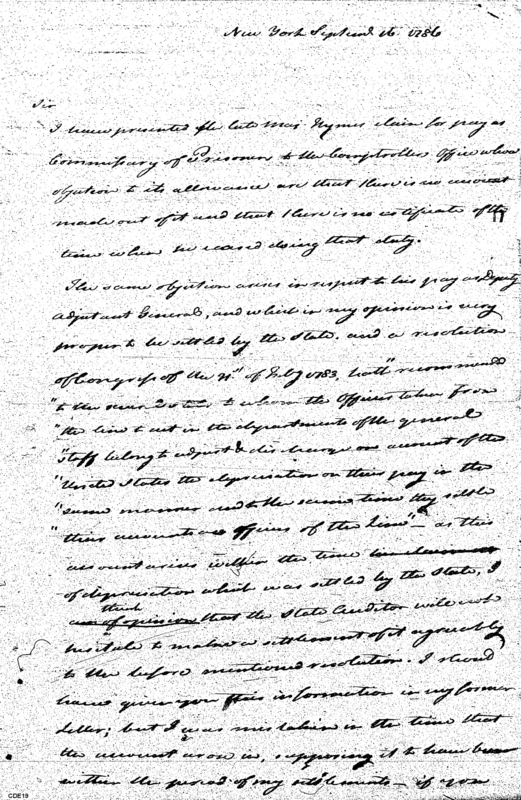 New York Septem! 16. 1786
Sir
I have presented the late Maj. Nymes claim for pay as
Commissary of Prisoners to the Comptrollers Office whose
objection to its allowance are that there is no account
made out of it and that there is no certificate of the
time when he ceased doing that duty.
The same objection arises in respect to his pay as Deputy
Adjutant General, and which in my opinion is very
proper to be settled by the State. and a resolution
of Congress of the of Feby 1783, hath "recommended
"to the several States to whom the Officers taken from
"the line to act in the departments of the general
"staff belong to adjust & discharge on account of the
"United States the depreciation on their pay in the
"same manner and to the same time they settle
"their accounts as officers of the line" — as this
account arises within the time
of depreciation which was settled by the State, I
think
am of opinion that the State Auditor will not
hesitate to make a settlement of it agreeably
to the before mentioned resolution. I should
have given you this information in my former
Letter; but I was mistaken in the time that
the account arose in, supposing it to have been
within the period of my settlements — if you
CDE19